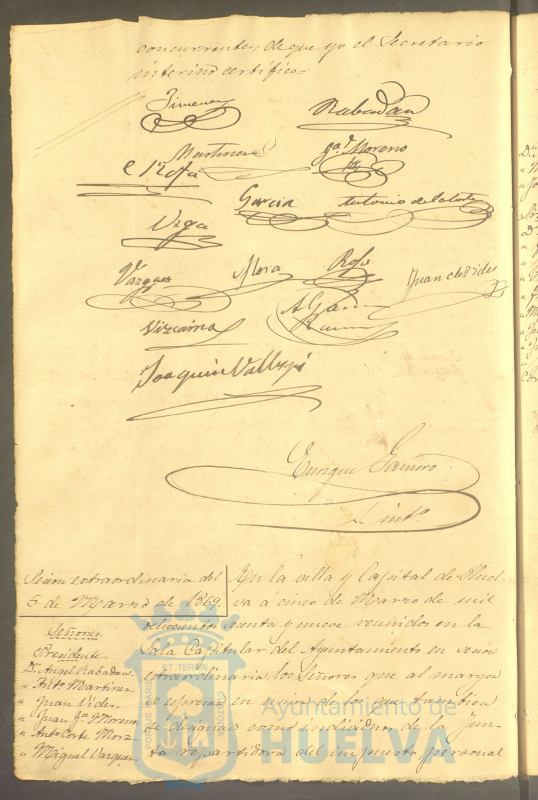 concurrentes, de que yo el Secretario
interino certifico
Jimenez
Rabadan
Martinez
Ga. y Moreno
Garcia
Antonio de la Corte
Vega
Vazquez
Mora
Juan de Vides
Vizcaino
Joaquin Vallejo
Enrique
Sesion extraordinaria del
5 de Marzo de 1869.
Señores
Presidente
D. Angel Rabadan.
" Anto. Martinez.
" Juan Vides.
" Juan Ga. y Moreno
" Anto. Corte Mora
" Miguel Vazquez.
En la villa y Capital de Huel-
va á cinco de Marzo de mil
ochocientos sesenta y nueve reunidos en la
Sala Capitular del Ayuntamiento en sesion
extraordinaria los Señores que al margen
se espresan en
se designan como individuos de la Jun-
ta repartidora del impuesto personal
Ayuntamiento de
HUELVA